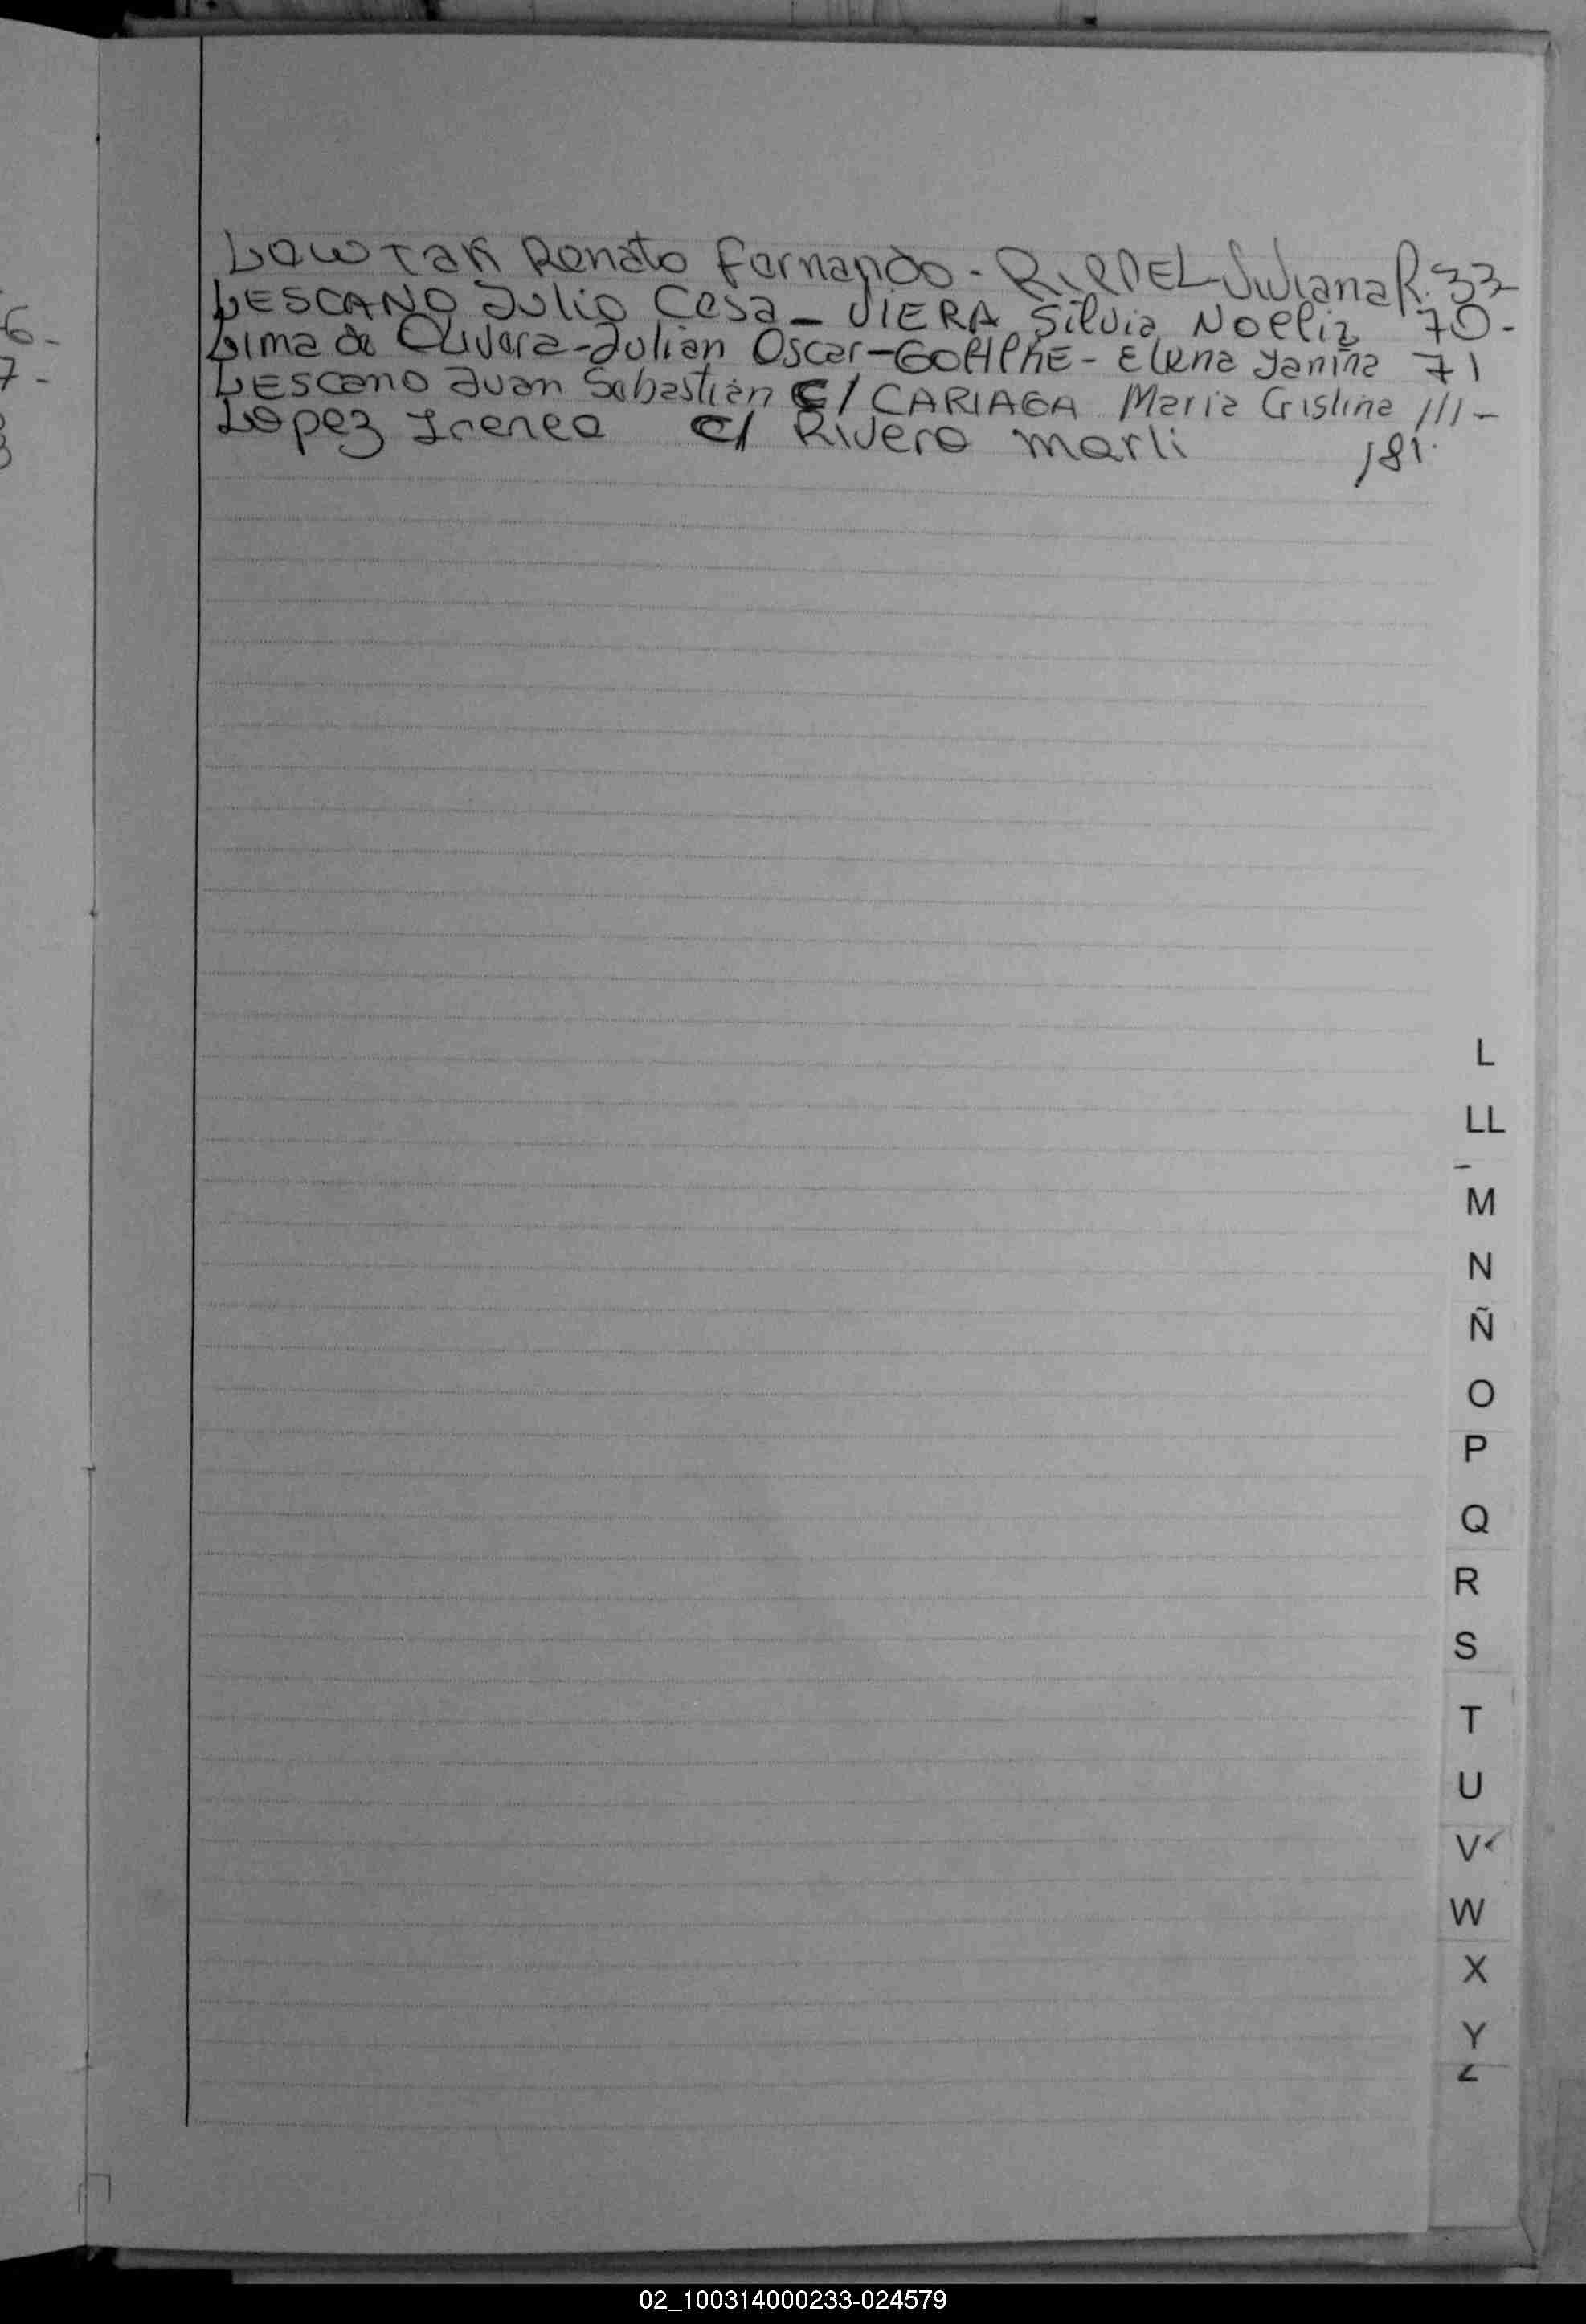 Lowtak Renato Fernando - RIEDEL Juliana R. 33-
LESCANO Julio Cesa - VIERA Silvia Noelia 70-
Lima de Olivera - Julian Oscar - - Elena Yanina 71
Lescano Juan Sebastian C/ CARIAGA Maria Cristina 111-
Lopez Irenea C/ Rivero Marli 181.
6-
7-
L
LL
M
N
Ñ
O
P
Q
R
S
T
U
V
W
X
Y
Z
02_100314000233-024579